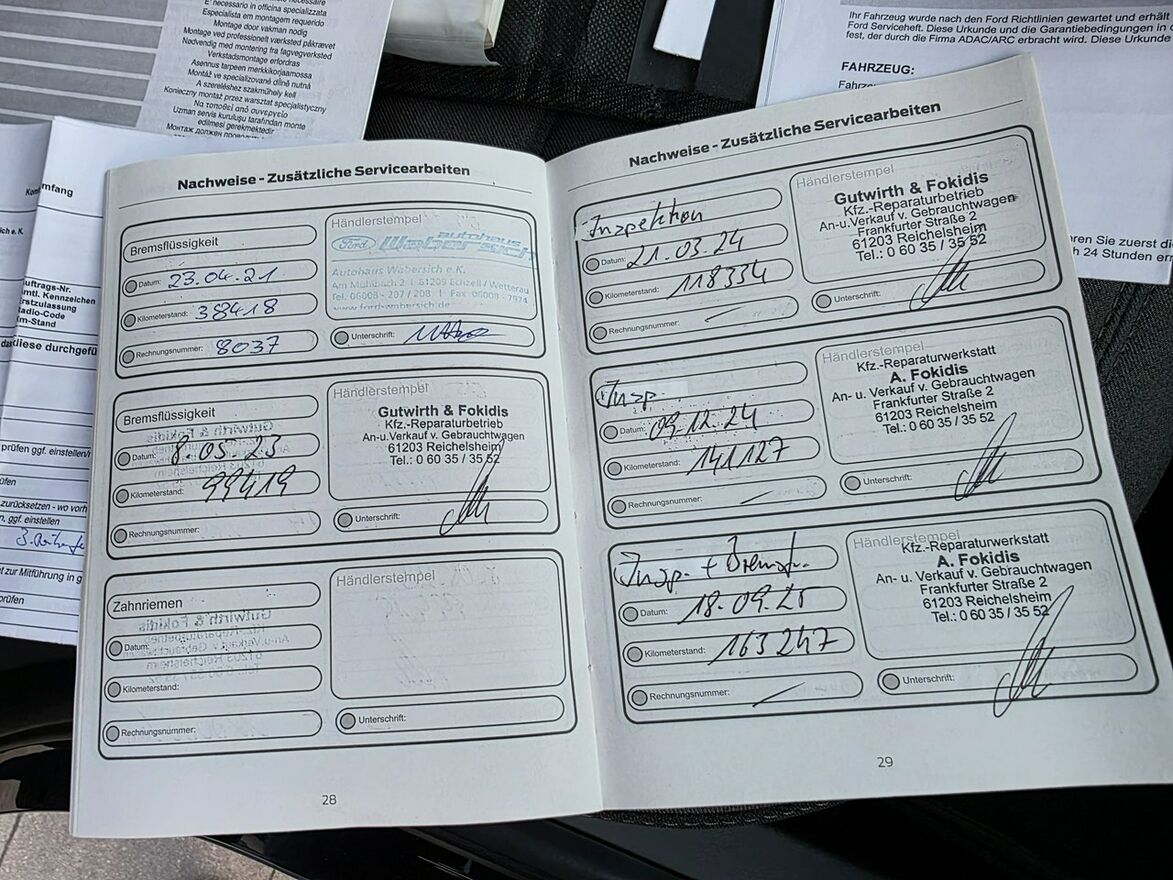 E' necessario in officina specializzata
Especialista em montagem requerido
Montage door vakman nodig
Montage ved professionelt værksted påkrævet
Nødvendig med montering fra fagvegverksted
Verkstadsmontage erfordras
Asennus tarpeen merkkikorjaamossa
Montáž ve specializované dílně nutná
A szereléshez szakműhely kell
Konieczny montaż przez warsztat specjalistyczny
Να τοποθεί από συνεργείο
Uzman servis kurulugu tarafından monte
edilmesi gerekmektedir
Ihr Fahrzeug wurde nach den Ford Richtlinien gewartet und erhält
Ford Serviceheft. Diese Urkunde und die Garantiebedingungen in
fest, der durch die Firma ADAC/ARC erbracht wird. Diese Urkunde
FAHRZEUG:
ren Sie zuerst di
h 24 Stunden er
mfang
uftrags-Nr.
mtl. Kennzeichen
rstzulassung
adio-Code
m-Stand
diese durchgefü
prüfen ggf. einstellen/
zurücksetzen - wo vorh
n, ggf. einstellen
t zur Mitführung in g
prüfen
Nachweise - Zusätzliche Servicearbeiten
Bremsflüssigkeit
Datum: 23.04.21
Kilometerstand: 38418
Rechnungsnummer: 8037
Händlerstempel
Ford autohaus
Wabersich
Autohaus Wabersich e.K.
Am Mühlbach 2 | 61209 Echzell / Wetterau
Tel. 06008 - 207 / 208 | Fax 06008 - 7974
www.ford-wabersich.de
Unterschrift:
Bremsflüssigkeit
Datum: 8.05.23
Kilometerstand: 99419
Rechnungsnummer:
Händlerstempel
Gutwirth & Fokidis
Kfz.-Reparaturbetrieb
An-u.Verkauf v. Gebrauchtwagen
61203 Reichelsheim
Tel.: 0 60 35 / 35 52
Unterschrift:
Zahnriemen
Datum:
Kilometerstand:
Rechnungsnummer:
Händlerstempel
Unterschrift:
28
Nachweise - Zusätzliche Servicearbeiten
Inspektion
Datum: 21.03.24
Kilometerstand: 118334
Rechnungsnummer:
Händlerstempel
Gutwirth & Fokidis
Kfz.-Reparaturbetrieb
An-u.Verkauf v. Gebrauchtwagen
Frankfurter Straße 2
61203 Reichelsheim
Tel.: 0 60 35 / 35 52
Unterschrift:
Insp.
Datum: 09.12.24
Kilometerstand: 141127
Rechnungsnummer:
Händlerstempel
Kfz.-Reparaturwerkstatt
A. Fokidis
An- u. Verkauf v. Gebrauchtwagen
Frankfurter Straße 2
61203 Reichelsheim
Tel.: 0 60 35 / 35 52
Unterschrift:
Insp. + Bremsf.
Datum: 18.09.25
Kilometerstand: 163247
Rechnungsnummer:
Händlerstempel
Kfz.-Reparaturwerkstatt
A. Fokidis
An- u. Verkauf v. Gebrauchtwagen
Frankfurter Straße 2
61203 Reichelsheim
Tel.: 0 60 35 / 35 52
Unterschrift:
29